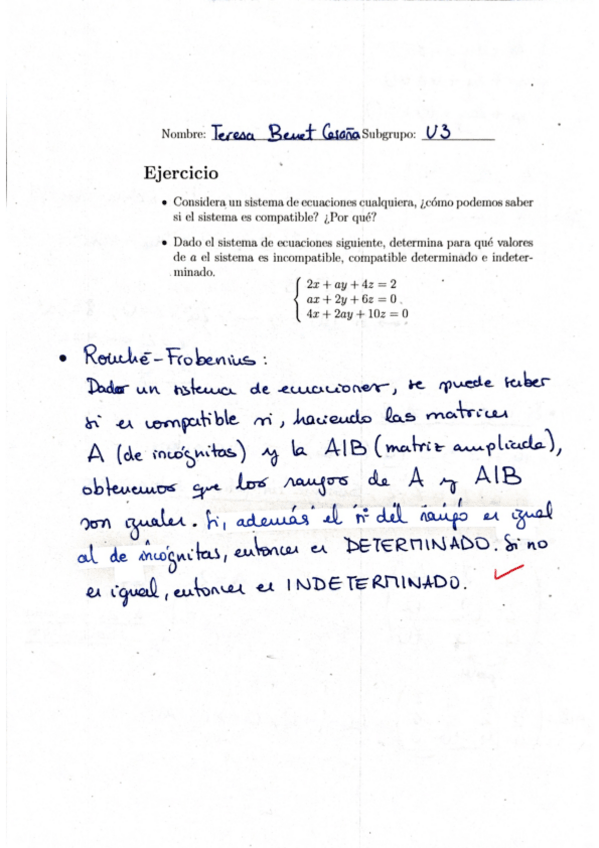 Nombre: Teresa Benet Casaña Subgrupo: U3
Ejercicio
• Considera un sistema de ecuaciones cualquiera, ¿cómo podemos saber
si el sistema es compatible? ¿Por qué?
• Dado el sistema de ecuaciones siguiente, determina para qué valores
de a el sistema es incompatible, compatible determinado e indeter-
minado.
2x + ay + 4z = 2
ax + 2y + 6z = 0 .
4x + 2ay + 10z = 0
• Rouché-Frobenius:
Dados un sistema de ecuaciones, se puede saber
si es compatible si, haciendo las matrices
A (de incógnitas) y la A|B (matriz ampliada),
obtenemos que los rangos de A y A|B
son iguales. Si, además el nº del rango es igual
al de incógnitas, entonces es DETERMINADO. Si no
es igual, entonces es INDETERMINADO.